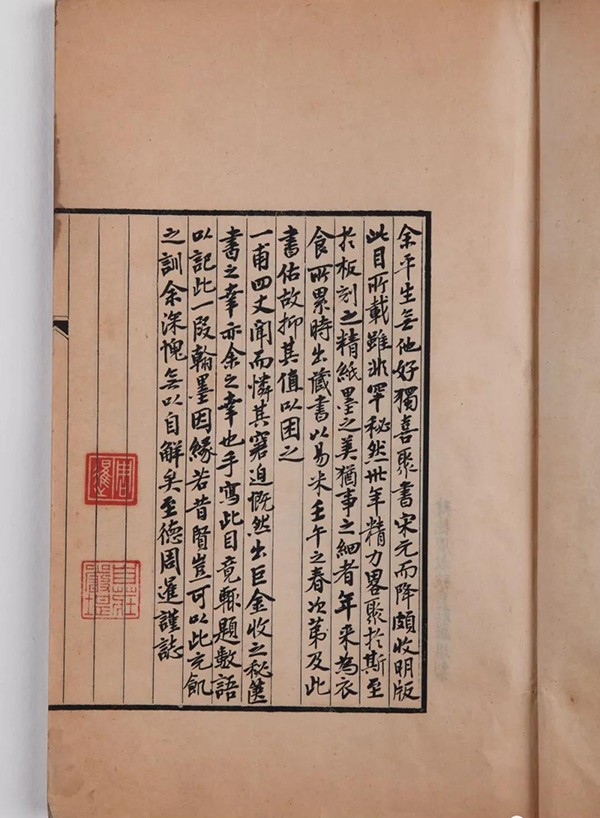 余平生無他好獨喜聚書宋元而降頗收明版
此目所載雖非罕秘然卅年精力畧聚於斯至
於板刻之精紙墨之美猶事之細者年來為衣
食所累時出藏書以易米壬午之春次第及此
書估故抑其值以困之
一甫四丈聞而憐其窘迫慨然出巨金收之秘篋
書之幸亦余之幸也手寫此目竟輒題數語
以記此一段翰墨因緣若昔賢豈可以此充飢
之訓余深愧無以自解矣至德周暹謹誌
周暹